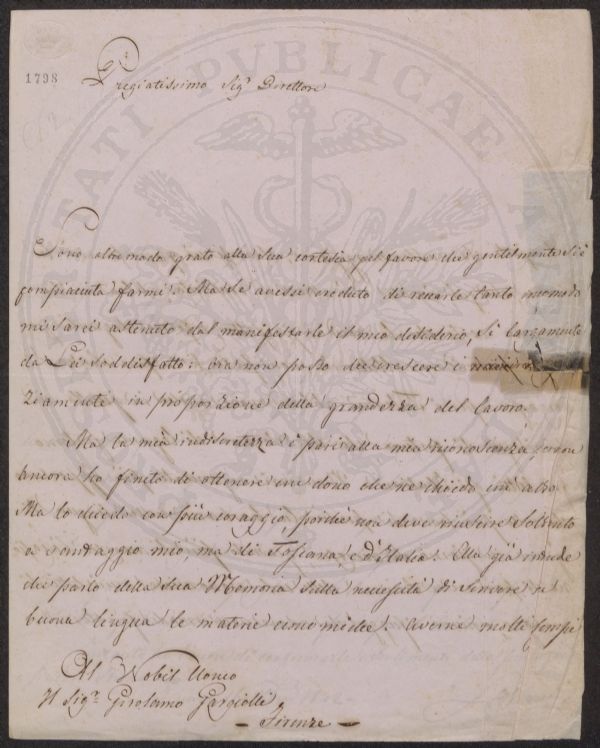 1798
Pregiatissimo Sigr Direttore
Sono oltremodo grato alla Sua cortesia pel favore che gentilmente si è
compiaciuta farmi. Ma se avessi creduto di recarle tanto incomodo
mi sarei astenuto dal manifestarle il mio desiderio, sì largamente
da Lei soddisfatto: ora non posso che crescere i
ziamenti in proporzione della grandezza del lavoro.
Ma la mia indiscretezza è pari alla mia riconoscenza, e non
ancora ho finito di ottenere un dono che ne chiedo un altro
Ma lo chiedo con più coraggio, poichè non deve riuscire soltanto
a vantaggio mio, ma di Toscana e d'Italia. Ella già intende
che parlo della Sua Memoria sulla necessità di scrivere in
buona lingua le materie economiche. Averne molti
Al Nobil Uomo
Il Sigr Girolamo Gargiolli
- Firenze -